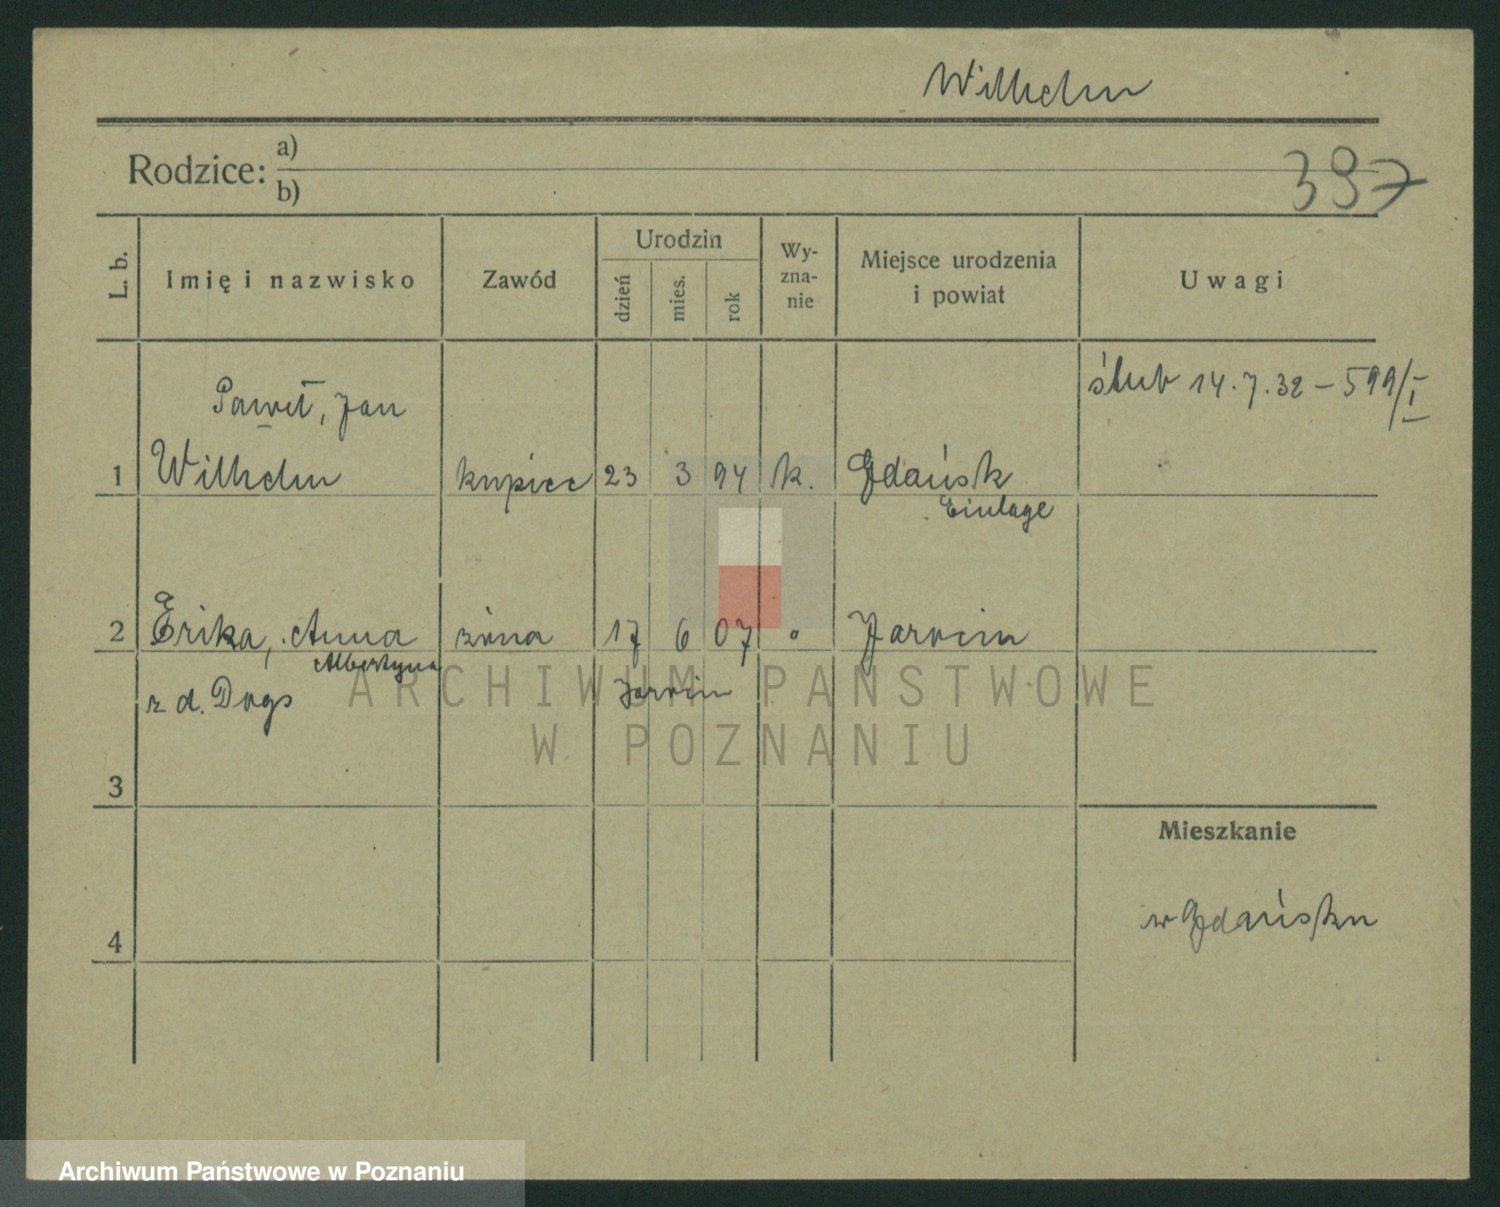 Wilhelm
Rodzice: a)
b)
397
L. b.
Imię i nazwisko
Zawód
Urodzin
dzień
mies.
rok
Wy-
zna-
nie
Miejsce urodzenia
i powiat
Uwagi
Paweł, Jan
ślub 14.7.32 – 599/I
1 Wilhelm kupiec 23 3 94 k. Gdańsk
Einlage
2 Erika, Anna żona 17 6 07 " Jarocin
Albertyna
z d. Jarocin
3
Mieszkanie
w Gdańsku
4
ARCHIWUM PAŃSTWOWE
W POZNANIU
Archiwum Państwowe w Poznaniu